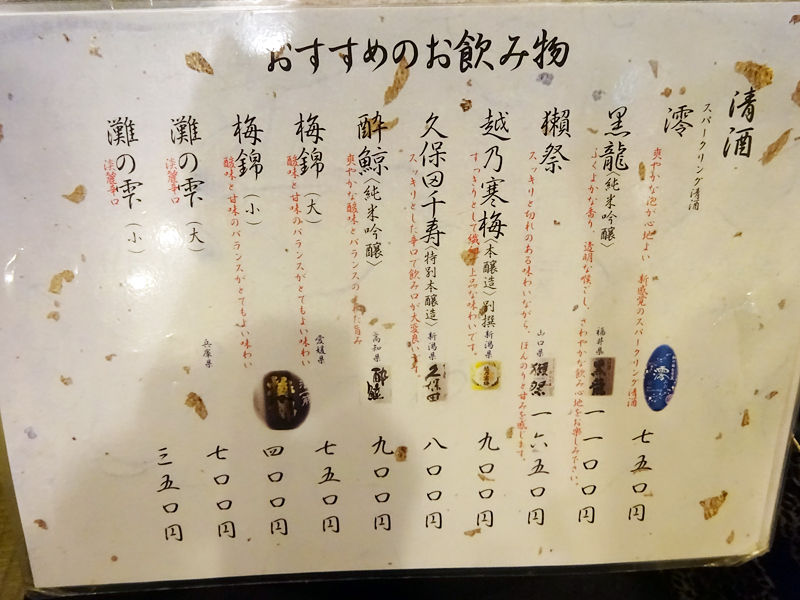 おすすめのお飲み物
清酒
スパークリング清酒
澪
爽やかな泡が心地よい 新感覚のスパークリング清酒
澪
七五〇円
黒龍〈純米吟醸〉
ふくよかな香り、透明な懐こし、さわやかな飲み心地をお楽しみ下さい。
福井県
黒龍
一一〇〇円
獺祭
スッキリと切れのある味わいながら、ほんのりと甘みを感じます。
山口県
獺祭
一六五〇円
越乃寒梅〈本醸造〉別撰
すっきりとして繊 上品な味わいです。
新潟県
九〇〇円
久保田千寿〈特別本醸造〉
スッキリとした辛口で飲み口が大変良い
新潟県
久保田
八〇〇円
酔鯨〈純米吟醸〉
爽やかな酸味と甘味のバランスの れた旨み
高知県
酔鯨
九〇〇円
梅錦(大)
酸味と甘味のバランスがとてもよい味わい
愛媛県
七五〇円
梅錦(小)
酸味と甘味のバランスがとてもよい味わい
四〇〇円
灘の雫(大)
淡麗辛口
兵庫県
七〇〇円
灘の雫(小)
淡麗辛口
三五〇円